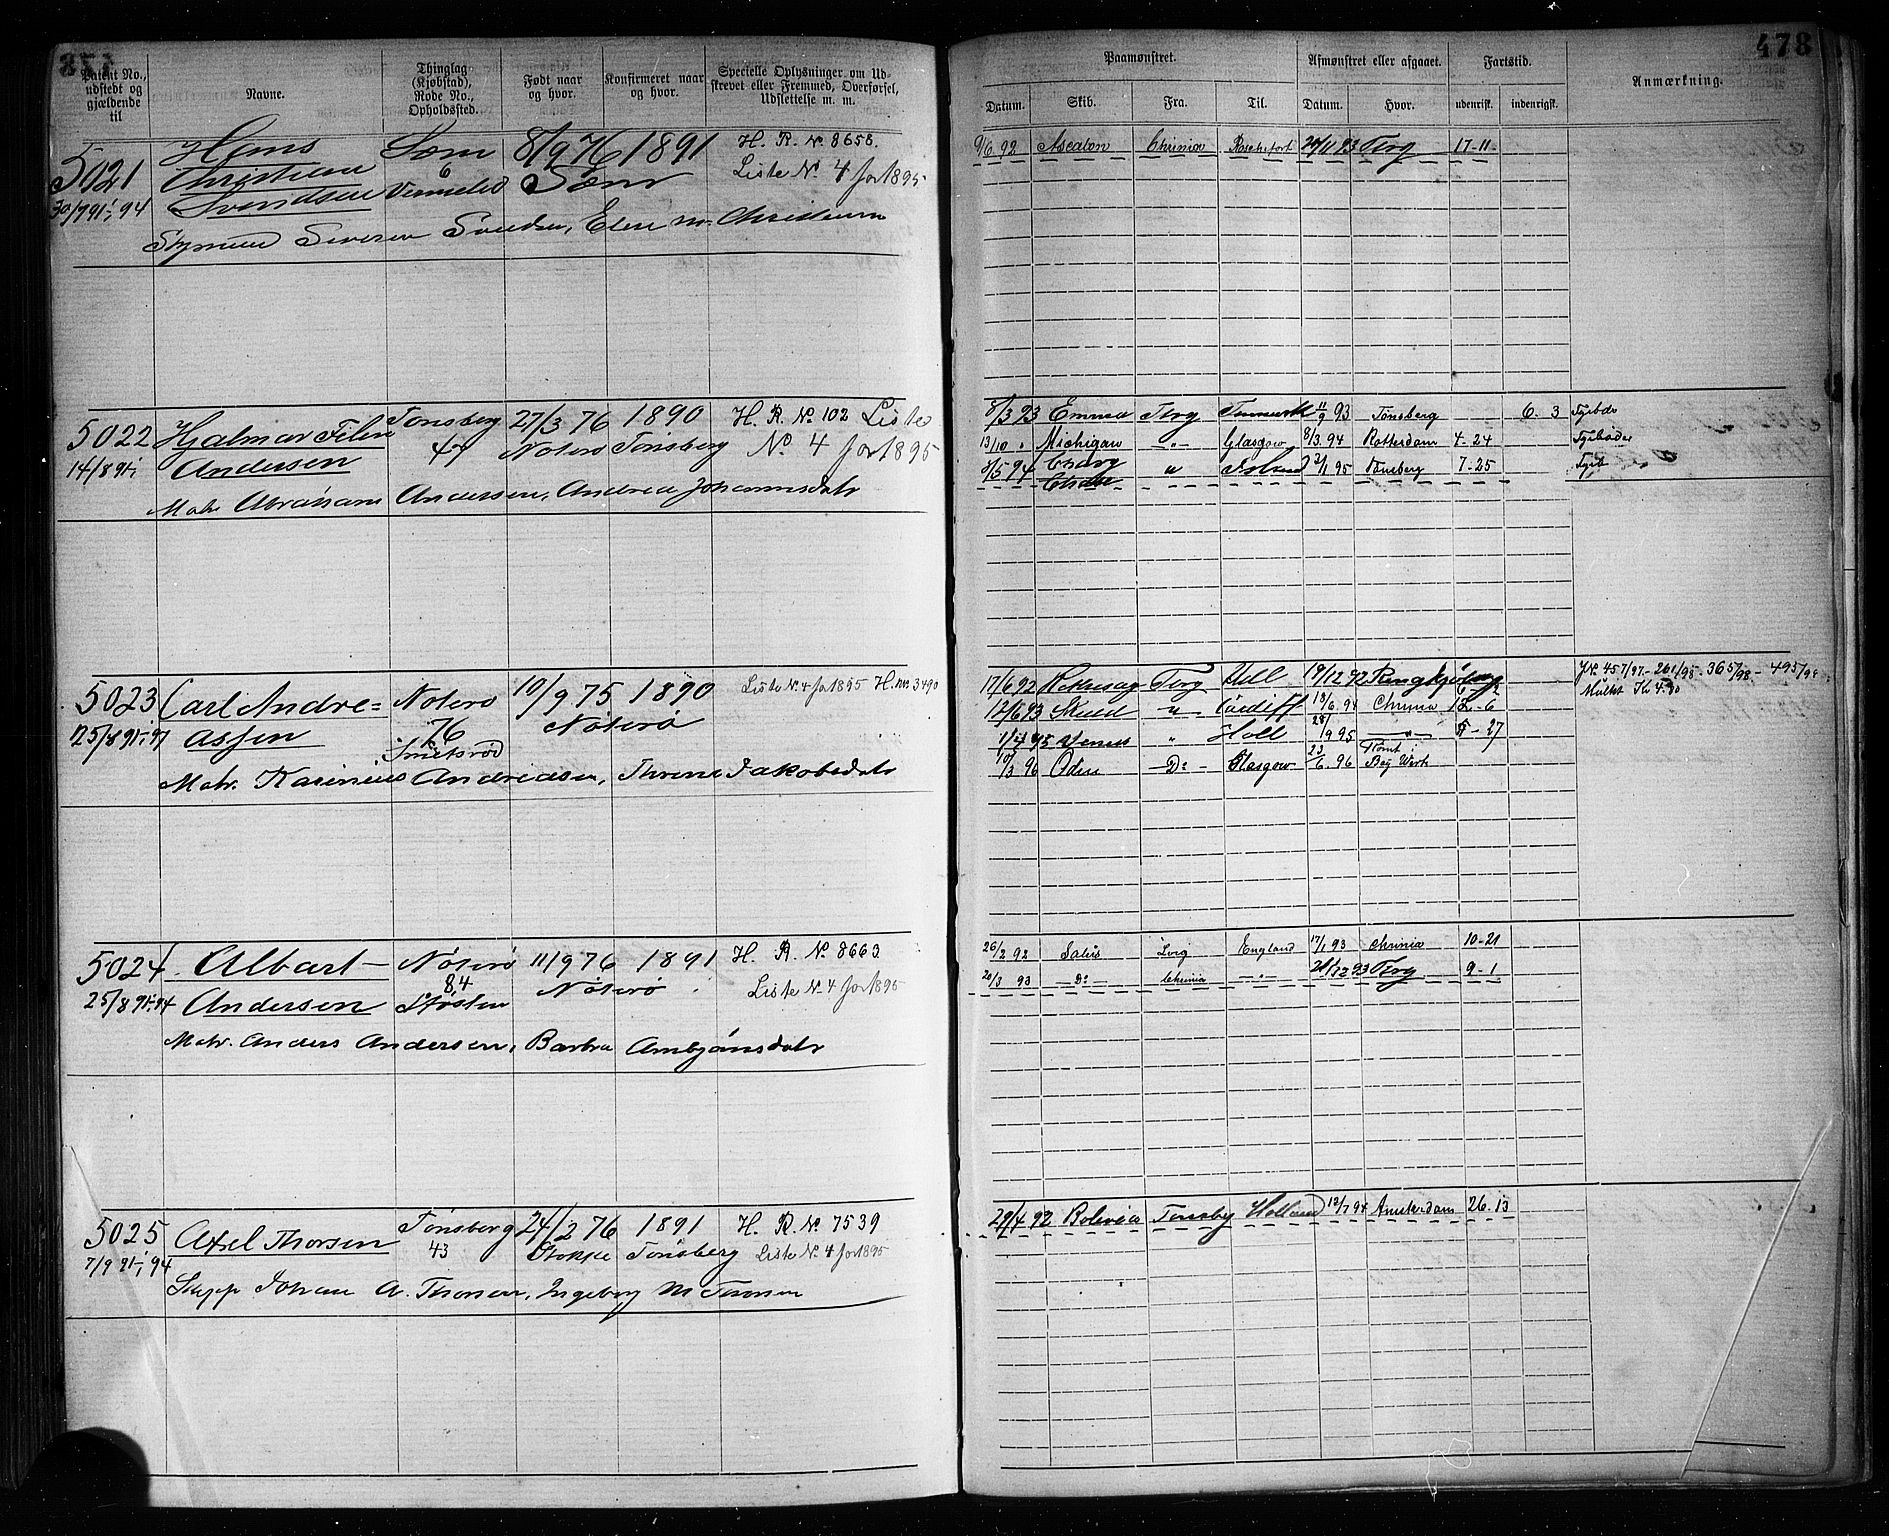 478
Patent No., udstedt og gjældende til
Navne.
Thinglag (Kjøbstad), Rode No., Opholdssted.
Født naar og hvor.
Konfirmeret naar og hvor.
Specielle Oplysninger om Udskrevet eller Fremmed, Overførsel, Udslettelse m. m.
Paamønstret.
Datum. Skib. Fra. Til.
Afmønstret eller afgaaet.
Datum. Hvor.
Fartstid.
udenrisk. indenrigsk.
Anmærkning.
5021 Hans Sem 8/9 76 1891 H. R. No 8658.
Christian 6 Sem Liste No. 4 for 1895
30/7 91, 94 Svendsen
Svendsen, Elen M. Christensen
9/6 92 Ascalon Chrinia Rochefort 93 Tbrg 17-11
5022 Hjalmar Tønsberg 27/3 76 1890 H. R. No 102 Liste
14/8 91 Andersen 47 Noterø Tønsberg No. 4 for 1895
Matr Abraham Andersen, Andrea Johannesdatr
8/3 93 Emma Tbrg 11/9 93 Tønsberg 6. 3
13/10 " Michigan -"- Glasgow 8/3 94 Rotterdam 4-24
8/5 94 " 95 Tønsberg 7-25
5023 Carl Andre= Noterø 10/9 75 1890 Liste No. 4 for 1895 H. nr. 3490
25/8 91, 97 assen 76 Nøterø
Smidsrød
Matr. Karinius Andreasen, Thrine Jakobsdatr
17/6 92 Tbrg Hull 19/12 92 Ringkjøbing
12/6 93 Skuld " Cardiff 18/6 94 Chrinia 12-6
1/4 95 Venus " Holl 28/9 95 -"- 5-27
10/3 96 Oden -Do- Glasgow 23/6. 96 Rømt i Bay Werk
JNo. 457/97 - 261/98 - 365/98 - 495/98
Mulkt Kr 4.80
5024 Albert Nøterø 11/9 76 1891 H. R. No 8663
25/8 91, 94 Andersen 84 Nøterø Liste No. 4 for 1895
Støsten
Matr. Anders Andersen, Barbra Ambjønsdatr
26/2 92 Salus Lvig England 17/1 93 Chrinia 10-21
20/3 93 -Do- Chrinia -"- 21/12 93 Tbrg 9-1
5025 Axel Thorsen Tønsberg 24/2 76 1891 H. R. No 7539
7/9 91, 94 43 Stokke Tønsberg Liste No. 4 for 1895
Skipp Johan A. Thorsen, Ingeborg M Thorsen
29/4 92 Bolivia Tønsbg Holland 12/7 94 Amsterdam 26. 13